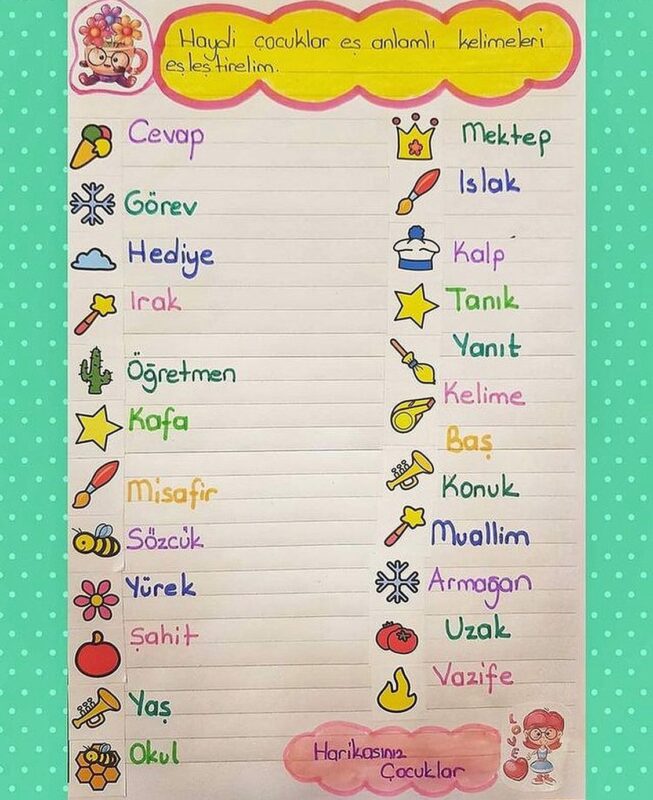 Haydi çocuklar eş anlamlı kelimeleri
eşleştirelim.
Cevap
Görev
Hediye
Irak
Öğretmen
Kafa
Misafir
Sözcük
Yürek
Şahit
Yaş
Okul
Mektep
Islak
Kalp
Tanık
Yanıt
Kelime
Baş
Konuk
Muallim
Armağan
Uzak
Vazife
Harikasınız
Çocuklar
LOVE